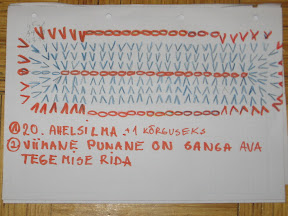 ① 20. AHELSILMA +1 KÕRGUSEKS
② VIIMANE PUNANE ON SANGA AVA
TEGEMISE RIDA